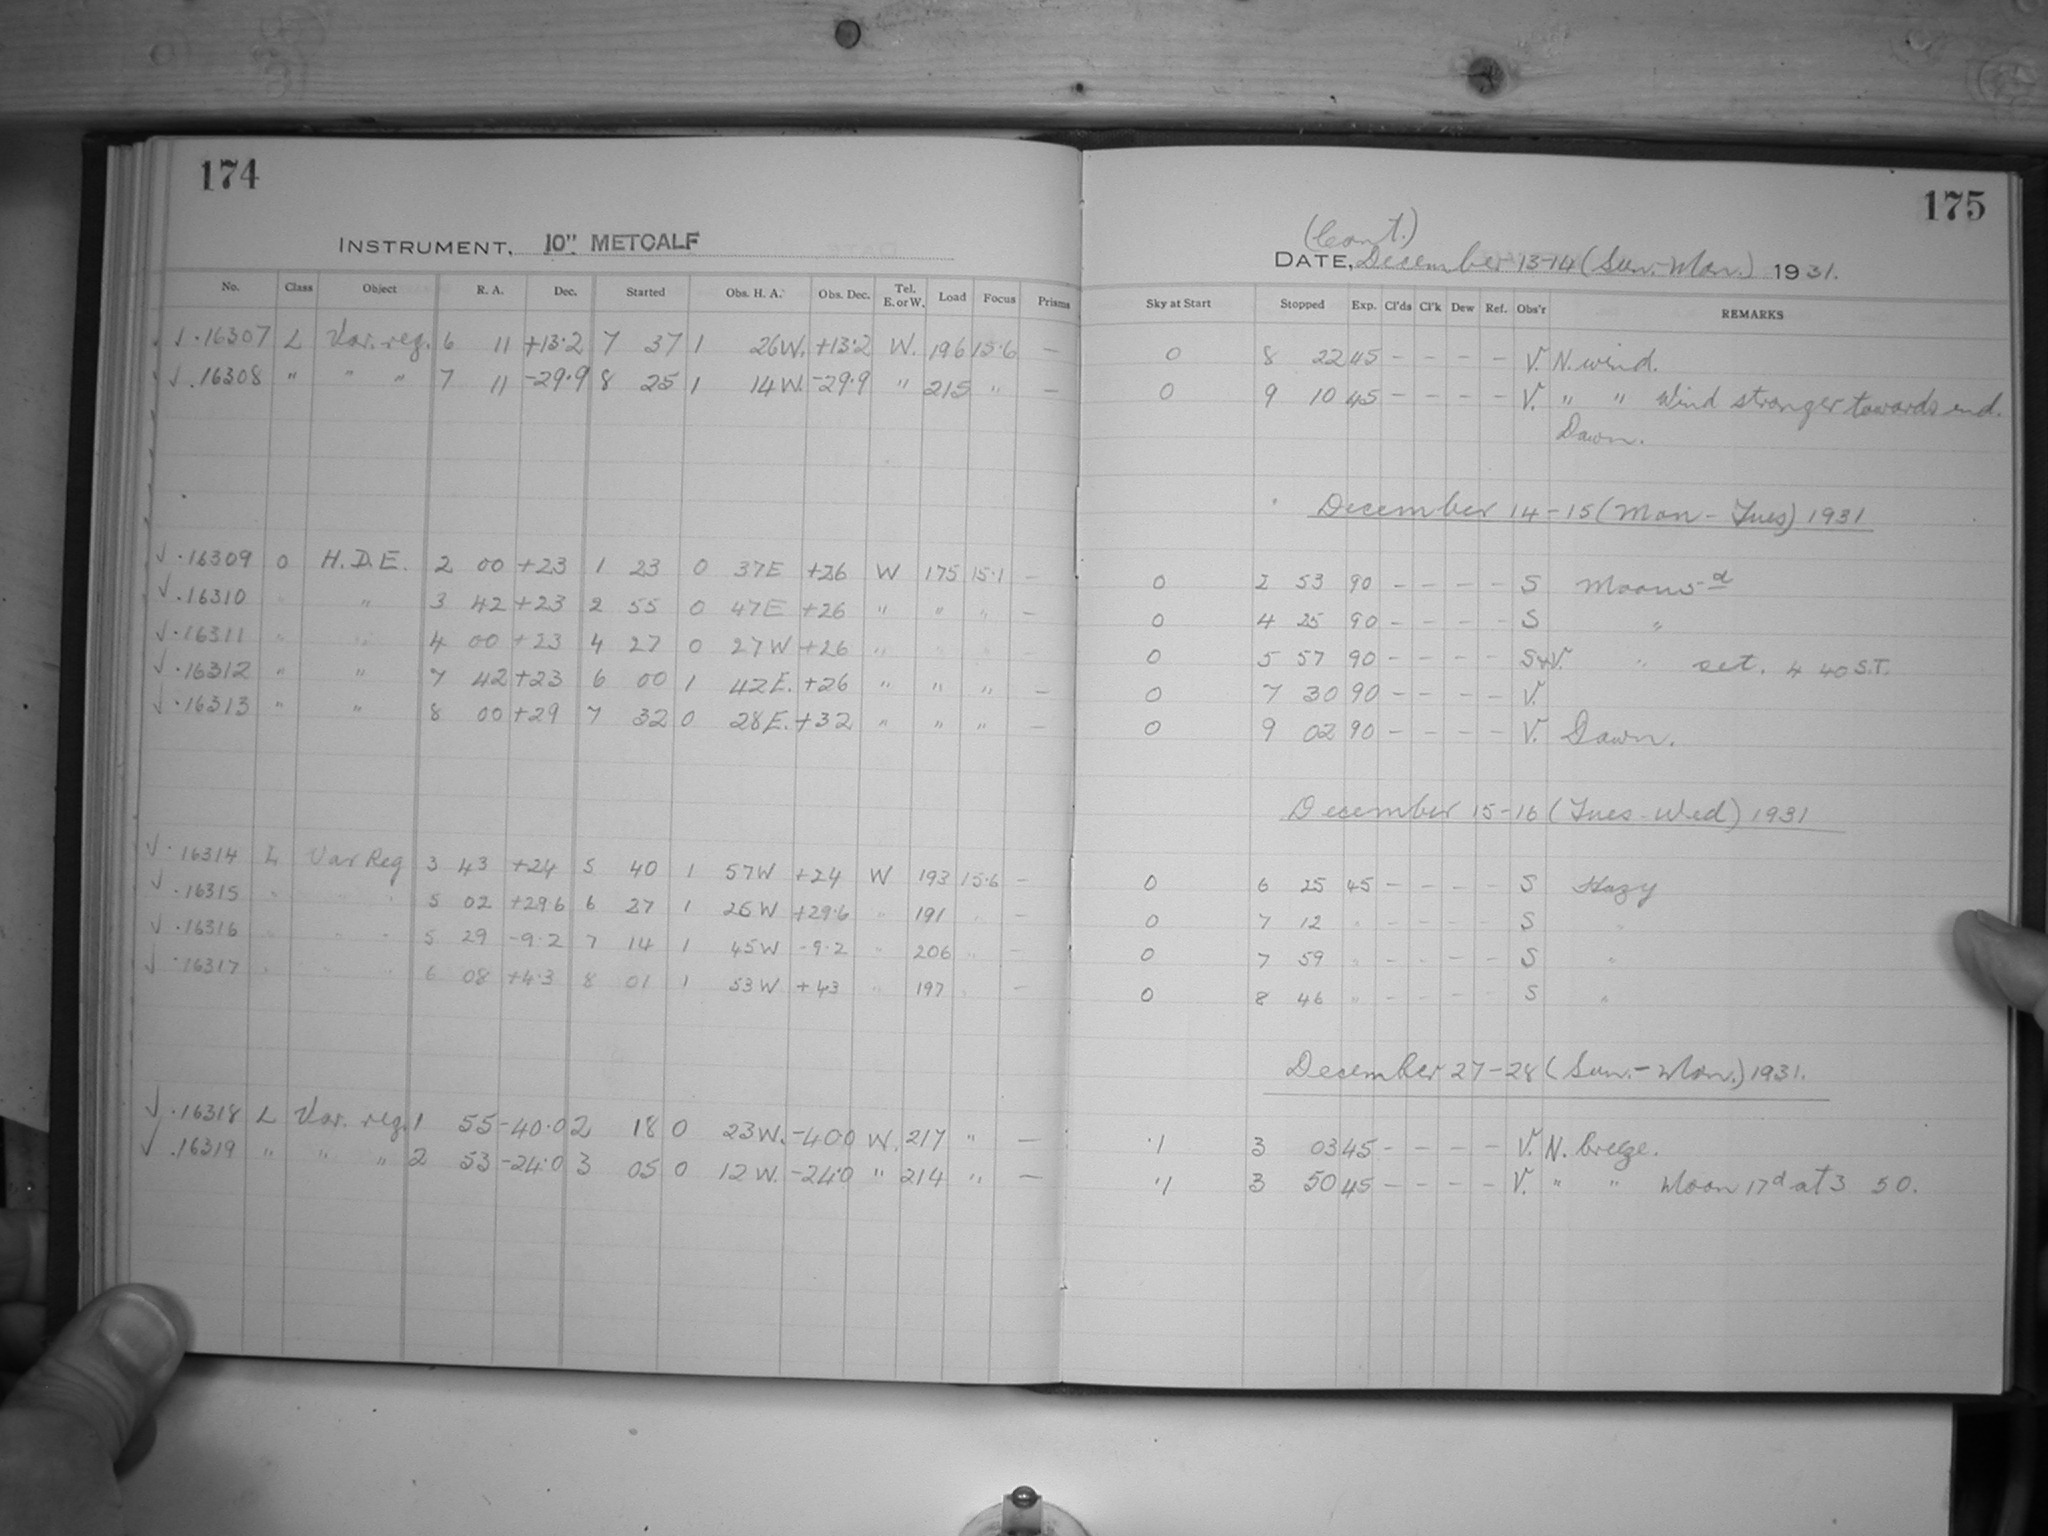 174
INSTRUMENT, 10" METCALF
No. Class Object R. A. Dec. Started Obs. H. A. Obs. Dec. Tel. E. or W. Load Focus Prisms
✓ .16307 L Var. reg. 6 11 +13.2 7 37 1 26W. +13.2 W. 196 15.6 —
✓ .16308 " " " 7 11 -29.9 8 25 1 14W. -29.9 " 215 " —
✓ .16309 O H.D.E. 2 00 +23 1 23 0 37E +26 W 175 15.1 —
✓ .16310 " " 3 42 +23 2 55 0 47E +26 " " " —
✓ .16311 " " 4 00 +23 4 27 0 27W +26 " " " —
✓ .16312 " " 7 42 +23 6 00 1 42E. +26 " " " —
✓ .16313 " " 8 00 +29 7 32 0 28E. +32 " " " —
✓ .16314 L Var Reg 3 43 +24 5 40 1 57W +24 W 193 15.6 —
✓ .16315 " " " 5 02 +29.6 6 27 1 26W +29.6 " 191 " —
✓ .16316 " " " 5 29 -9.2 7 14 1 45W -9.2 " 206 " —
✓ .16317 " " " 6 08 +4.3 8 01 1 53W +43 " 197 " —
✓ .16318 L Var. reg. 1 55 -40.0 2 18 0 23W. -40.0 W. 217 " —
✓ .16319 " " " 2 53 -24.0 3 05 0 12W. -24.0 " 214 " —
175
(Cont.)
DATE, December 13-14 (Sun.-Mon.) 1931.
Sky at Start Stopped Exp. Cl'ds Cl'k Dew Ref. Obs'r REMARKS
0 8 22 45 — — — — V. N. wind.
0 9 10 45 — — — — V. " " Wind stronger towards end.
Dawn.
December 14-15 (Mon-Tues) 1931
0 2 53 90 — — — — S Moon 5-d
0 4 25 90 — — — — S "
0 5 57 90 — — — — S+V. " set. 4 40 S.T.
0 7 30 90 — — — — V.
0 9 02 90 — — — — V. Dawn.
December 15-16 (Tues-Wed) 1931
0 6 25 45 — — — — S Hazy
0 7 12 " — — — — S "
0 7 59 " — — — — S "
0 8 46 " — — — — S "
December 27-28 (Sun.-Mon.) 1931.
.1 3 03 45 — — — — V. N. breeze.
.1 3 50 45 — — — — V. " " Moon 17d at 3 50.